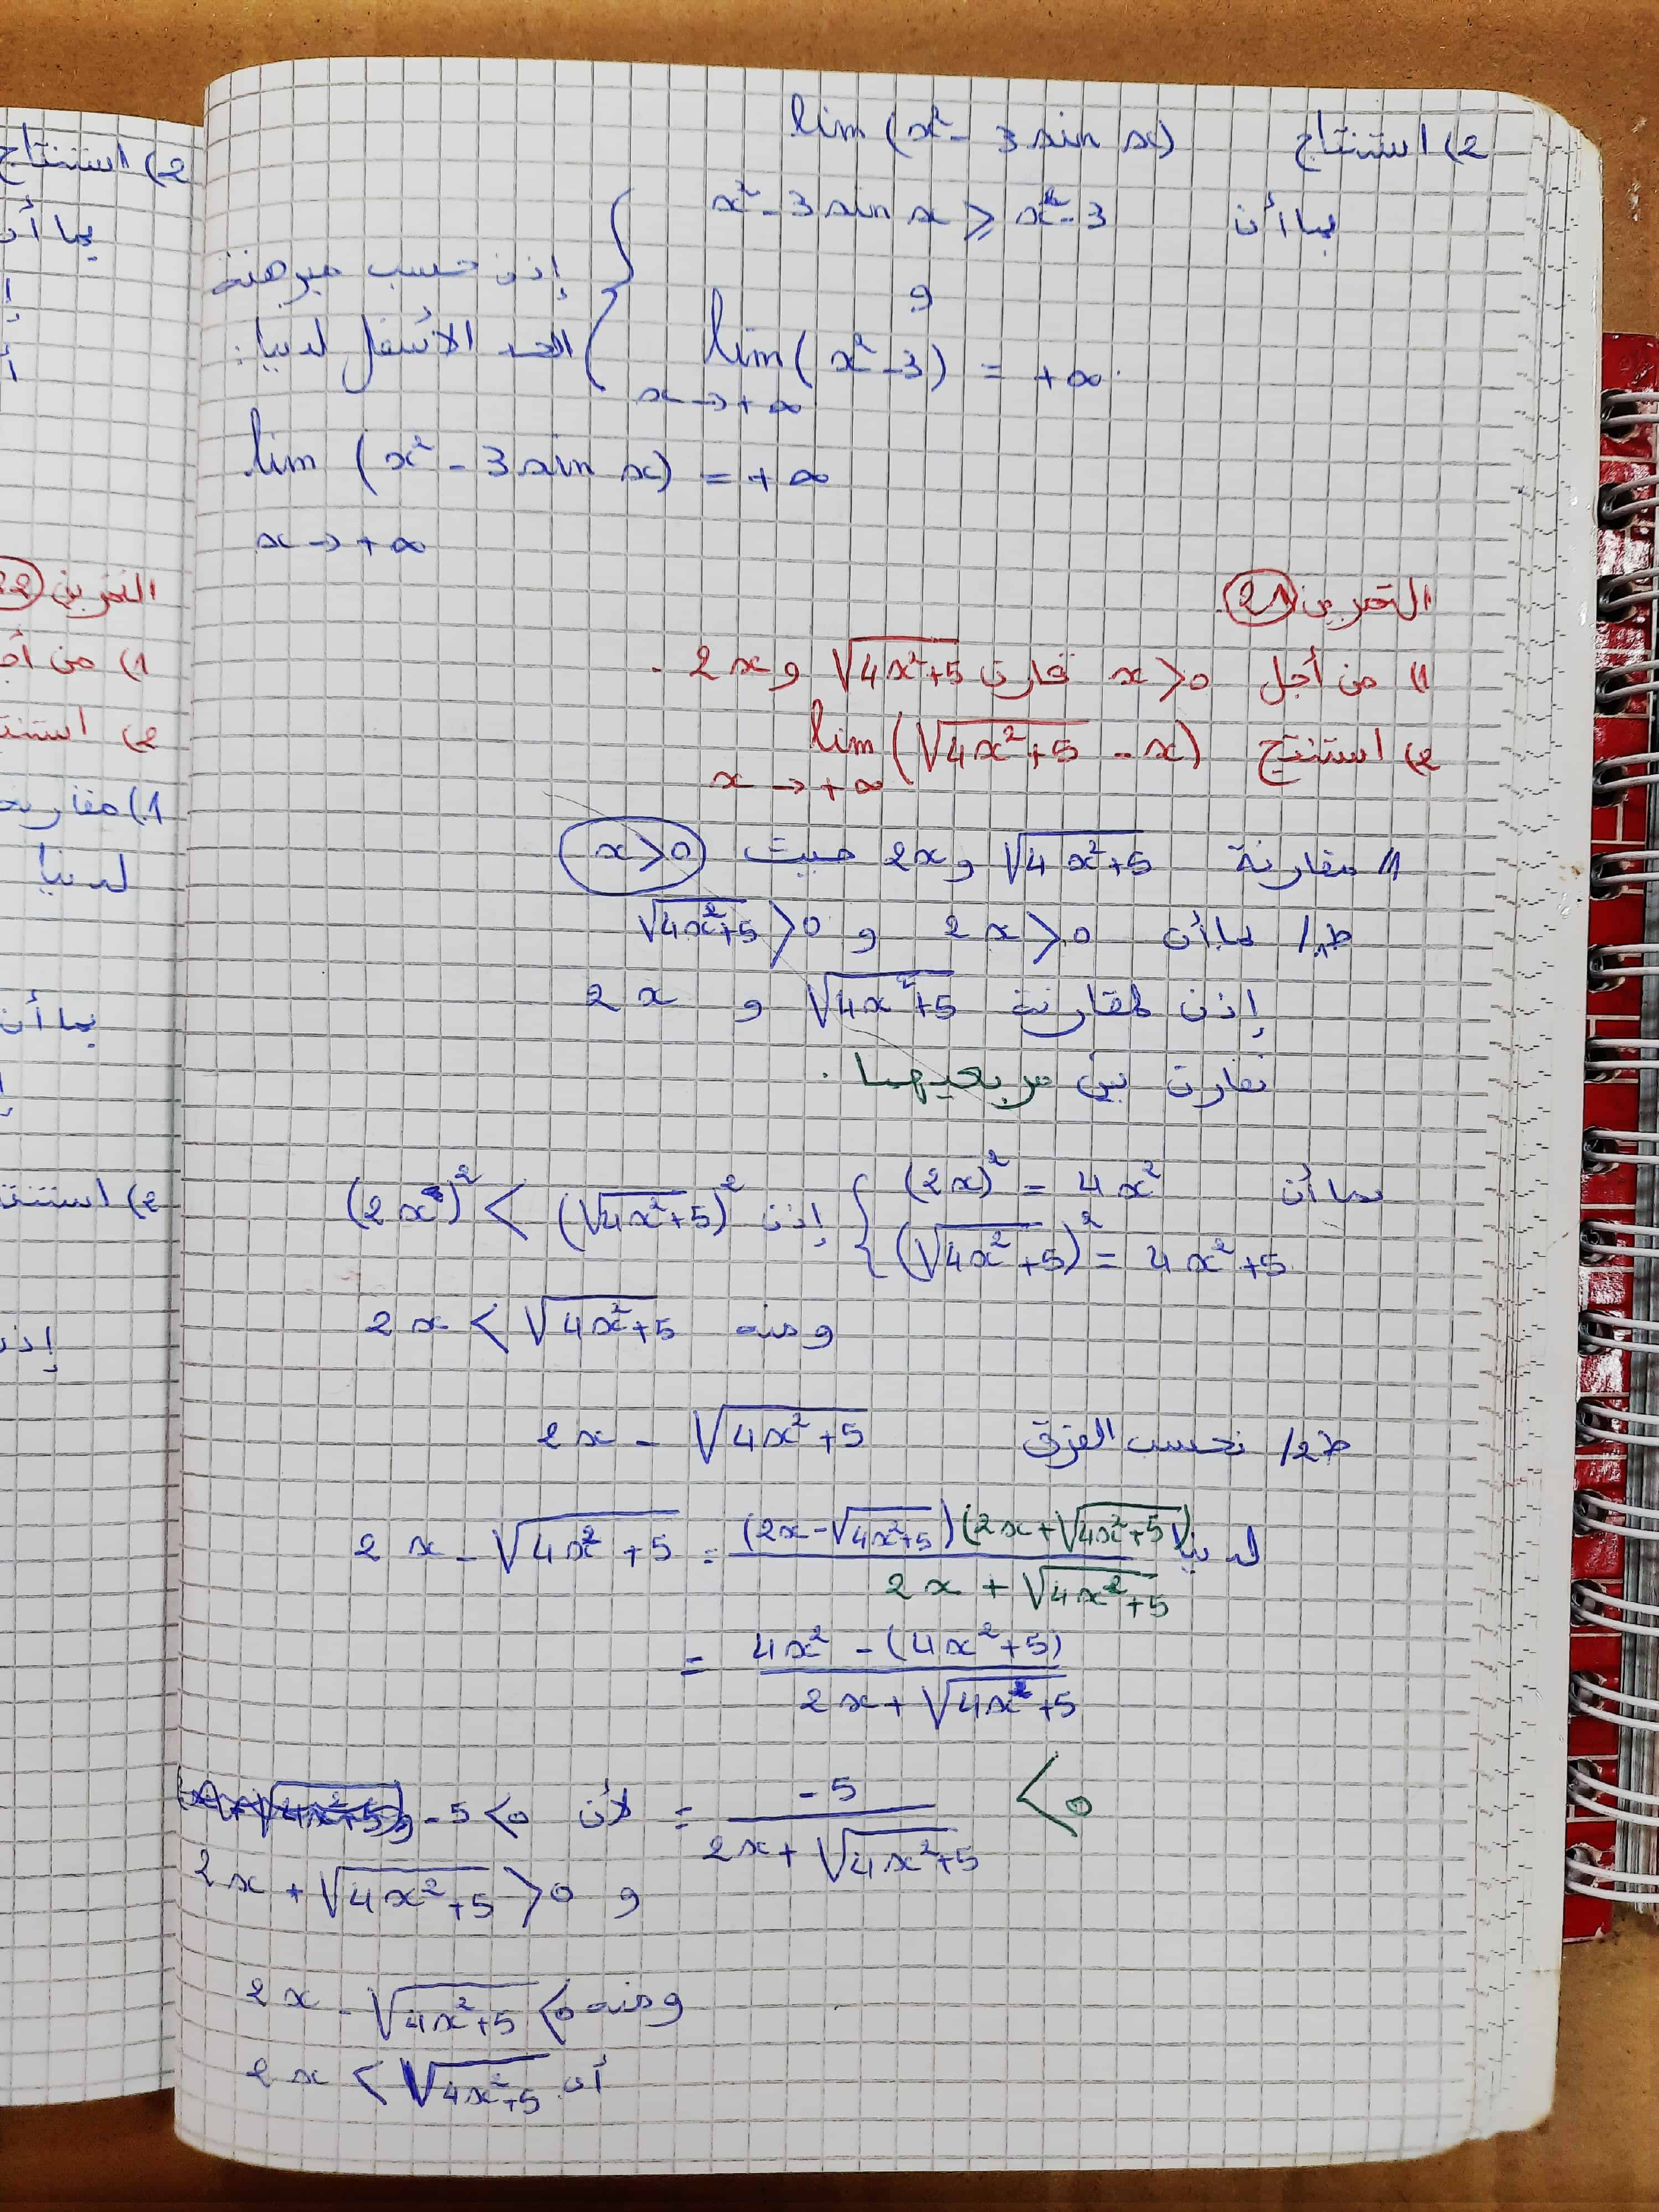 2) استنتاج lim (x² - 3 sin x)
بما أن x² - 3 sin x ≥ x² - 3
و
lim (x² - 3) = +∞
x → +∞
إذن حسب مبرهنة
الحد الأسفل لدينا:
lim (x² - 3 sin x) = +∞
x → +∞
التمرين 21
1) من أجل x > 0 قارن √(4x²+5) و 2x .
2) استنتج lim (√(4x²+5) - x)
x → +∞
1) مقارنة √(4x²+5) و 2x حيث x > 0
ط1/ لما أن 2x > 0 و √(4x²+5) > 0
إذن لمقارنة √(4x²+5) و 2x
نقارن بين مربعيهما .
بما أن (2x)² = 4x²
(√(4x²+5))² = 4x²+5
إذن (2x)² < (√(4x²+5))²
ومنه 2x < √(4x²+5)
ط2/ نحسب الفرق 2x - √(4x²+5)
لدينا 2x - √(4x²+5) = (2x - √(4x²+5))(2x + √(4x²+5)) / (2x + √(4x²+5))
= (4x² - (4x²+5)) / (2x + √(4x²+5))
= -5 / (2x + √(4x²+5)) < 0
لأن -5 < 0
و 2x + √(4x²+5) > 0
ومنه 2x - √(4x²+5) < 0
أن 2x < √(4x²+5)
2) استنتاج
بما أن
التمرين 22
1) من أج
2) استنت
1) مقارنة
لدينا
بما أن
2) استنتا
إذن